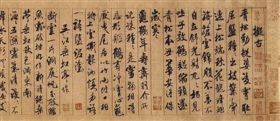 擬古
青松勁挺姿凌霄恥
屈盤種種出枝葉牽
連上松端秋花起絳
烟旖旎雲錦殷不羞
不自立舒光射丸丸
柏見吐子效鶴疑縮
頸還青松本無華安得保
歲寒
龜鶴年壽齊羽介所託
殊種種是靈物相得忘
形軀鶴有沖霄心龜厭
曳尾居以竹兩附口相將
上雲衢報汝慎勿語
一語墮泥塗
吳江垂虹亭作
斷雲一片洞庭帆玉破
鱸魚金破柑好作新詩繼